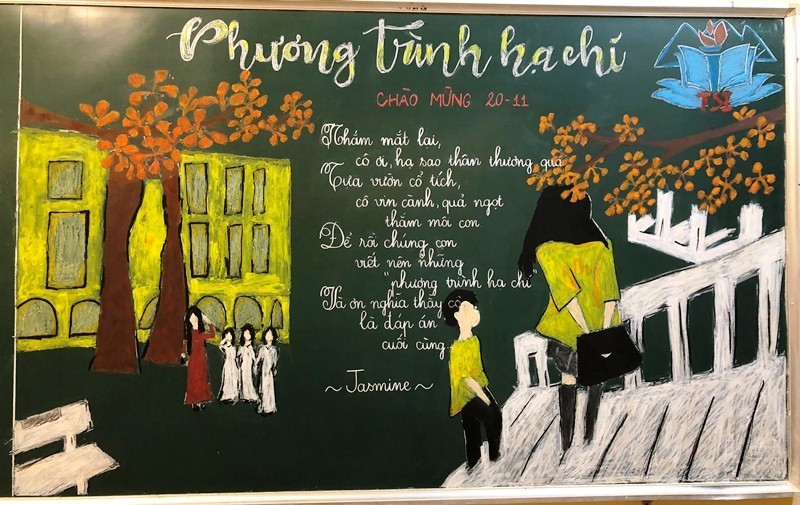 Phương trình hạ chí
CHÀO MỪNG 20-11
FSI
Nhắm mắt lại,
cô ơi, hạ sao thân thương quá
Tựa vườn cổ tích,
cô vin cành, quả ngọt
thắm môi con
Để rồi chúng con
viết nên những
"phương trình hạ chí"
Và ơn nghĩa thầy cô
là đáp án
cuối cùng
~ Jasmine ~